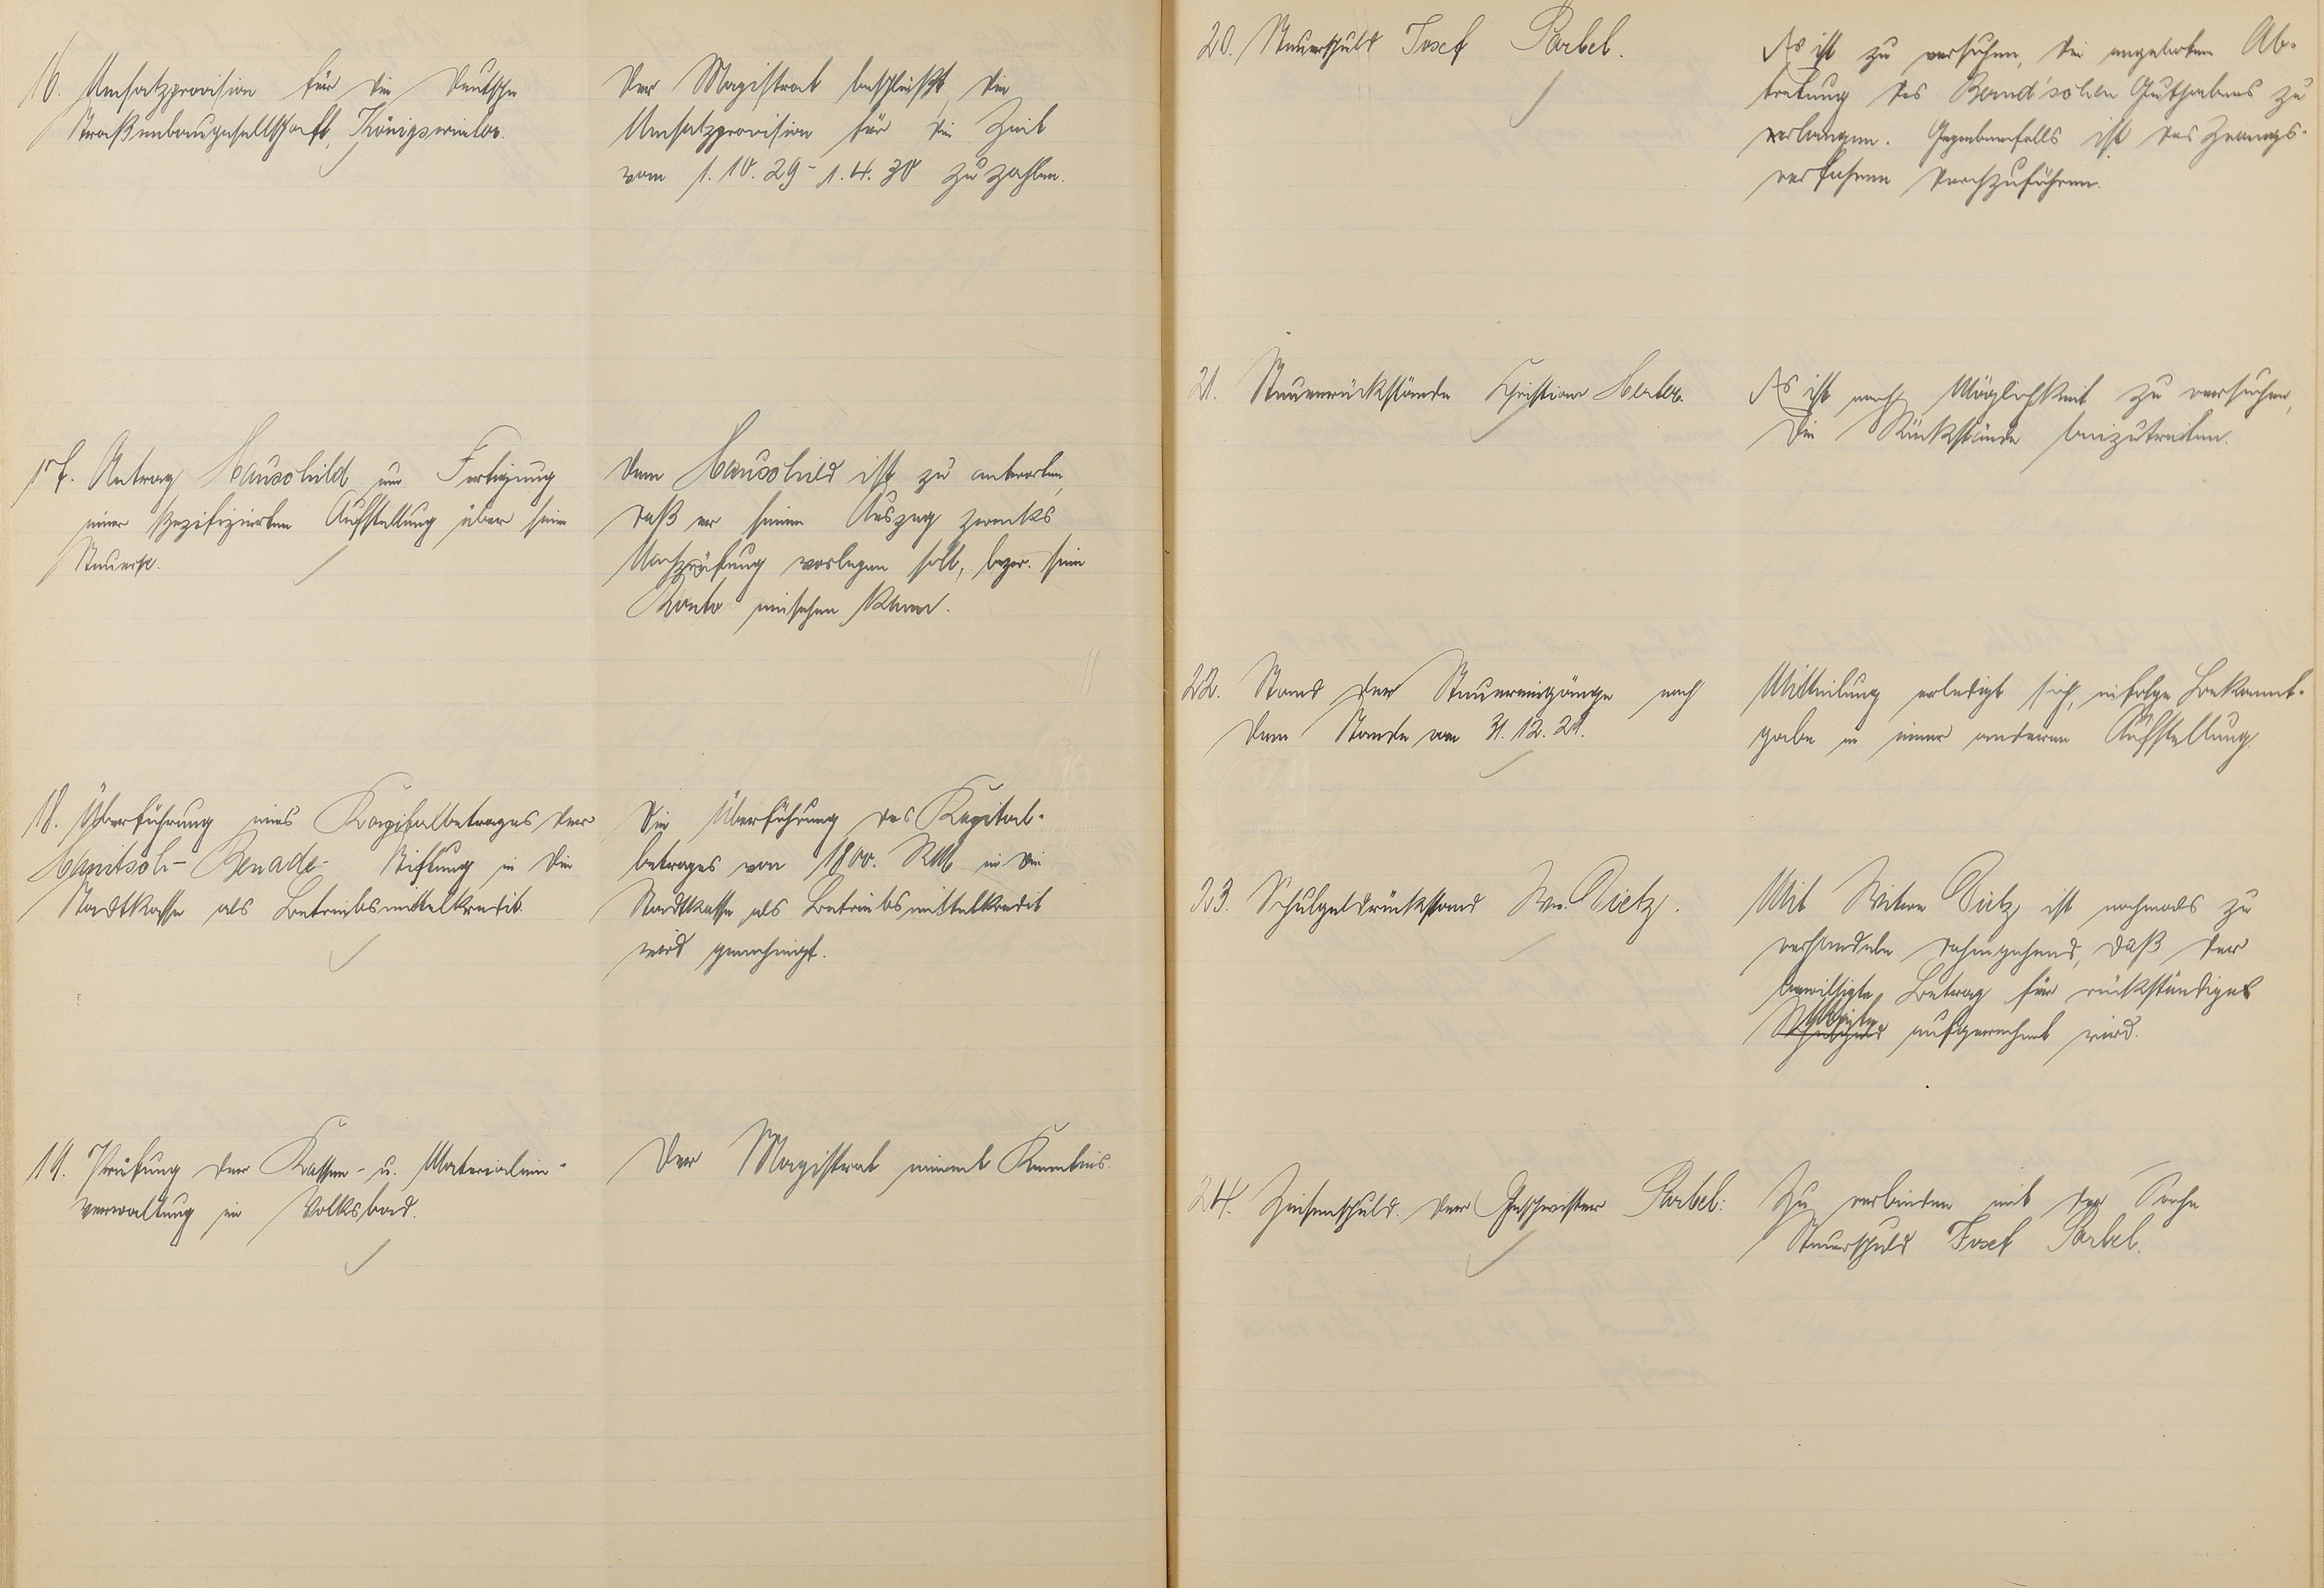 16. Umsatzprovision für die Deutsche
Straßenbaugesellschaft, Königswinter.
Der Magistrat beschließt, die
Umsatzprovision für die Zeit
vom 1.10.29 - 1.4.30 zu zahlen.
17. Antrag Hauschild um Fertigung
einer spezifizierten Aufstellung über sein
Steuerk.
Dem Hauschild ist zu antworten,
daß er seinen Auszug zwecks
Nachprüfung vorlegen soll, bezw. sein
Konto einsehen kann.
18. Überführung eines Kapitalbetrages der
Hanitsch-Benade-Stiftung in die
Stadtkasse als Betriebsmittelkredit.
Die Überführung des Kapital-
betrages von 1800. RM in die
Stadtkasse als Betriebsmittelkredit
wird genehmigt.
19. Prüfung der Kassen- u. Materialien-
verwaltung im Volksbad.
Der Magistrat nimmt Kenntnis.
20. Steuerschuld Josef Parbel.
Es ist zu versuchen, die angebotene Ab-
tretung des Bernd'schen Guthabens zu
erlangen. Gegebenenfalls ist das Zwangs-
verfahren durchzuführen.
21. Steuerrückstände Christian Herter.
Es ist nach Möglichkeit zu versuchen,
die Rückstände beizutreiben.
22. Stand der Steuereingänge nach
dem Stande vom 31.12.29.
Mitteilung erledigt sich, infolge Bekannt-
gabe in einer anderen Aufstellung.
23. Schulgeldrückstand Ww. Dietz.
Mit Witwe Dietz ist nochmals zu
verhandeln dahingehend, daß der
bewilligte Betrag für rückständiges
Schulgeld aufgerechnet wird.
24. Zinsenschuld der Geschwister Parbel:
Zu verbinden mit der Sache
Steuerschuld Josef Parbel.